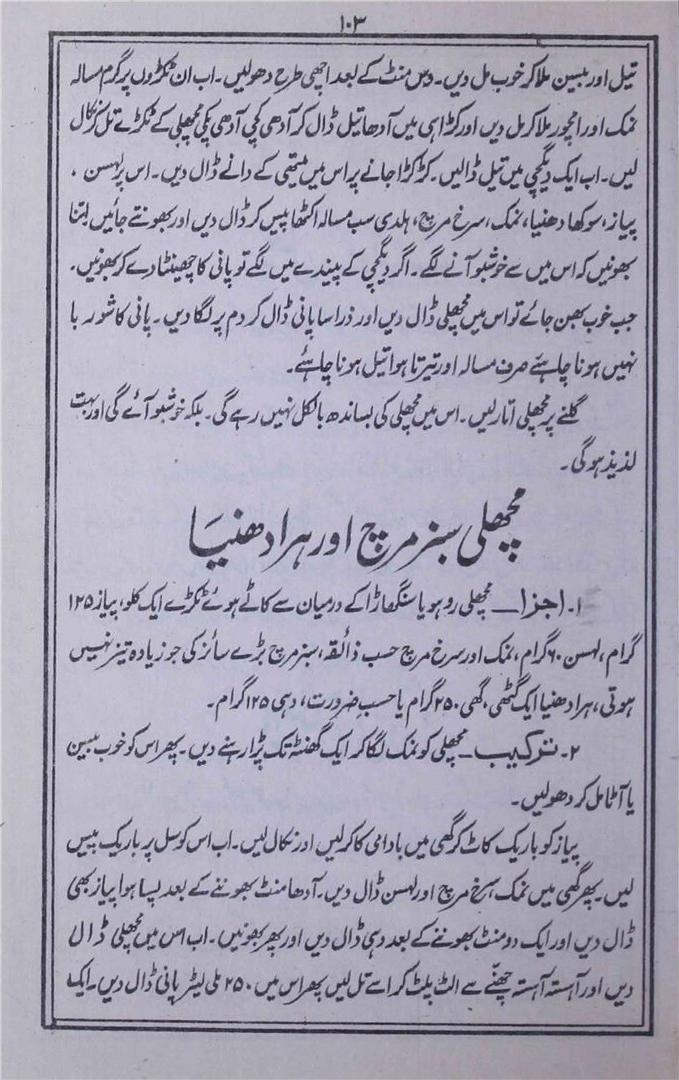 ۱۰۳
تیل اور بیسن ملا کر خوب مل دیں۔ دس منٹ کے بعد اچھی طرح دھو لیں۔ اب ان ٹکڑوں پر گرم مسالہ
نمک اور امچور ملا کر مل دیں اور کڑاہی میں آدھا تیل ڈال کر آدھی کچی آدھی پکی مچھلی کے ٹکڑے تل کر نکال
لیں۔ اب ایک دیگچی میں تیل ڈالیں۔ کڑکڑا جانے پر اس میں میتھی کے دانے ڈال دیں۔ اس پر لہسن،
پیاز، سوکھا دھنیا، نمک، سرخ مرچ، ہلدی سب مسالہ اکٹھا پیس کر ڈال دیں اور بھونتے جائیں اتنا
بھونیں کہ اس میں سے خوشبو آنے لگے۔ اگر دیگچی کے پیندے میں لگے تو پانی کا چھینٹا دے کر بھونیں۔
جب خوب بھن جائے تو اس میں مچھلی ڈال دیں اور ذرا سا پانی ڈال کر دم پر لگا دیں۔ پانی کا شوربا
نہیں ہونا چاہیئے صرف مسالہ اور تیرتا ہوا تیل ہونا چاہیئے۔
گلنے پر مچھلی اتار لیں۔ اس میں مچھلی کی بساندھ بالکل نہیں رہے گی۔ بلکہ خوشبو آئے گی اور بہت
لذیذ ہو گی۔
مچھلی سبز مرچ اور ہرا دھنیا
۱۔ اجزا ــ مچھلی روہو یا سنگھاڑا کے درمیان سے کاٹے ہوئے ٹکڑے ایک کلو، پیاز ۱۲۵
گرام، لہسن ۶۰ گرام، نمک اور سرخ مرچ حسب ذائقہ، سبز مرچ بڑے سائز کی جو زیادہ تیز نہیں
ہوتی، ہرا دھنیا ایک گٹھی، گھی ۲۵۰ گرام یا حسبِ ضرورت، دہی ۱۲۵ گرام۔
۲۔ ترکیب ــ مچھلی کو نمک لگا کر ایک گھنٹہ تک پڑا رہنے دیں۔ پھر اس کو خوب بیسن
یا آٹا مل کر دھو لیں۔
پیاز کو باریک کاٹ کر گھی میں بادامی کر لیں اور نکال لیں۔ اب اس کو سل پر باریک پیس
لیں۔ پھر گھی میں نمک، سرخ مرچ اور لہسن ڈال دیں۔ آدھا منٹ بھوننے کے بعد پسا ہوا پیاز بھی
ڈال دیں اور ایک دو منٹ بھوننے کے بعد دہی ڈال دیں اور پھر بھونیں۔ اب اس میں مچھلی ڈال
دیں اور آہستہ آہستہ چمچے سے الٹ پلٹ کر اسے تل لیں پھر اس میں ۲۵۰ ملی لیٹر پانی ڈال دیں۔ ایک